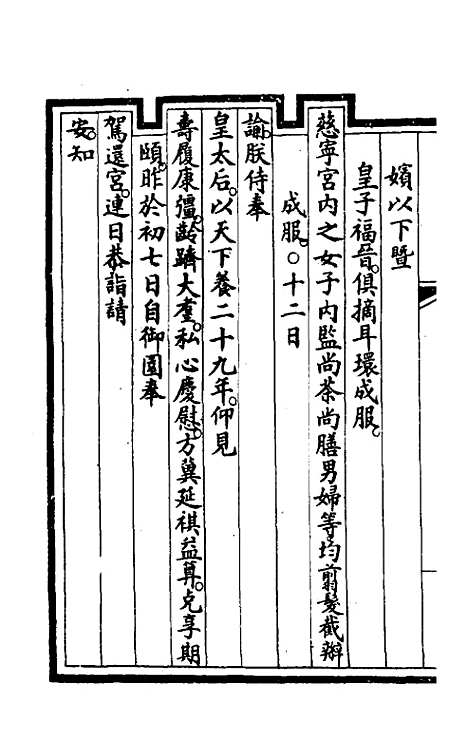 嬪以下暨
皇子福晉。俱摘耳環成服。
慈寧宮內之女子內監尚茶尚膳男婦等均翦髮截辮
成服。○十二日
諭。朕侍奉
皇太后。以天下養二十九年。仰見
壽履康彊。齡躋大耋。私心慶慰。方冀延祺益算。克享期
頤。昨於初七日自御園奉
駕還宮。連日恭詣請
安。知